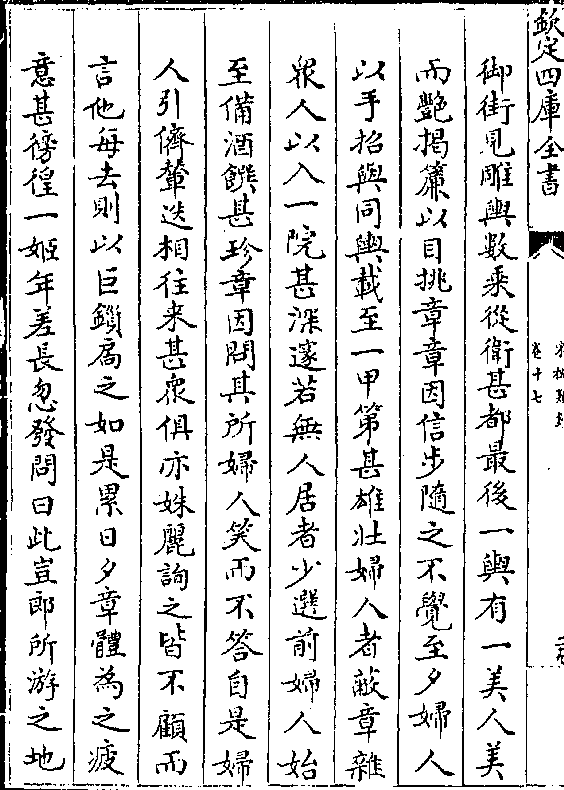 欽定四庫全書
卷十七
御街見雕輿數乘從衛甚都最後一輿有一美人美
而豔揭簾以目挑章章因信步隨之不覺至夕婦人
以手招與同輿載至一甲第甚雄壯婦人者蔽章雜
衆人以入一院甚深邃若無人居者少選前婦人始
至備酒饌甚珍章因問其所婦人笑而不答自是婦
人引儕輩迭相往來甚衆俱亦姝麗詢之皆不顧而
言他每去則以巨鎖扃之如是累日夕章體為之疲
意甚徬徨一姬年差長忽發問曰此豈郎所游之地